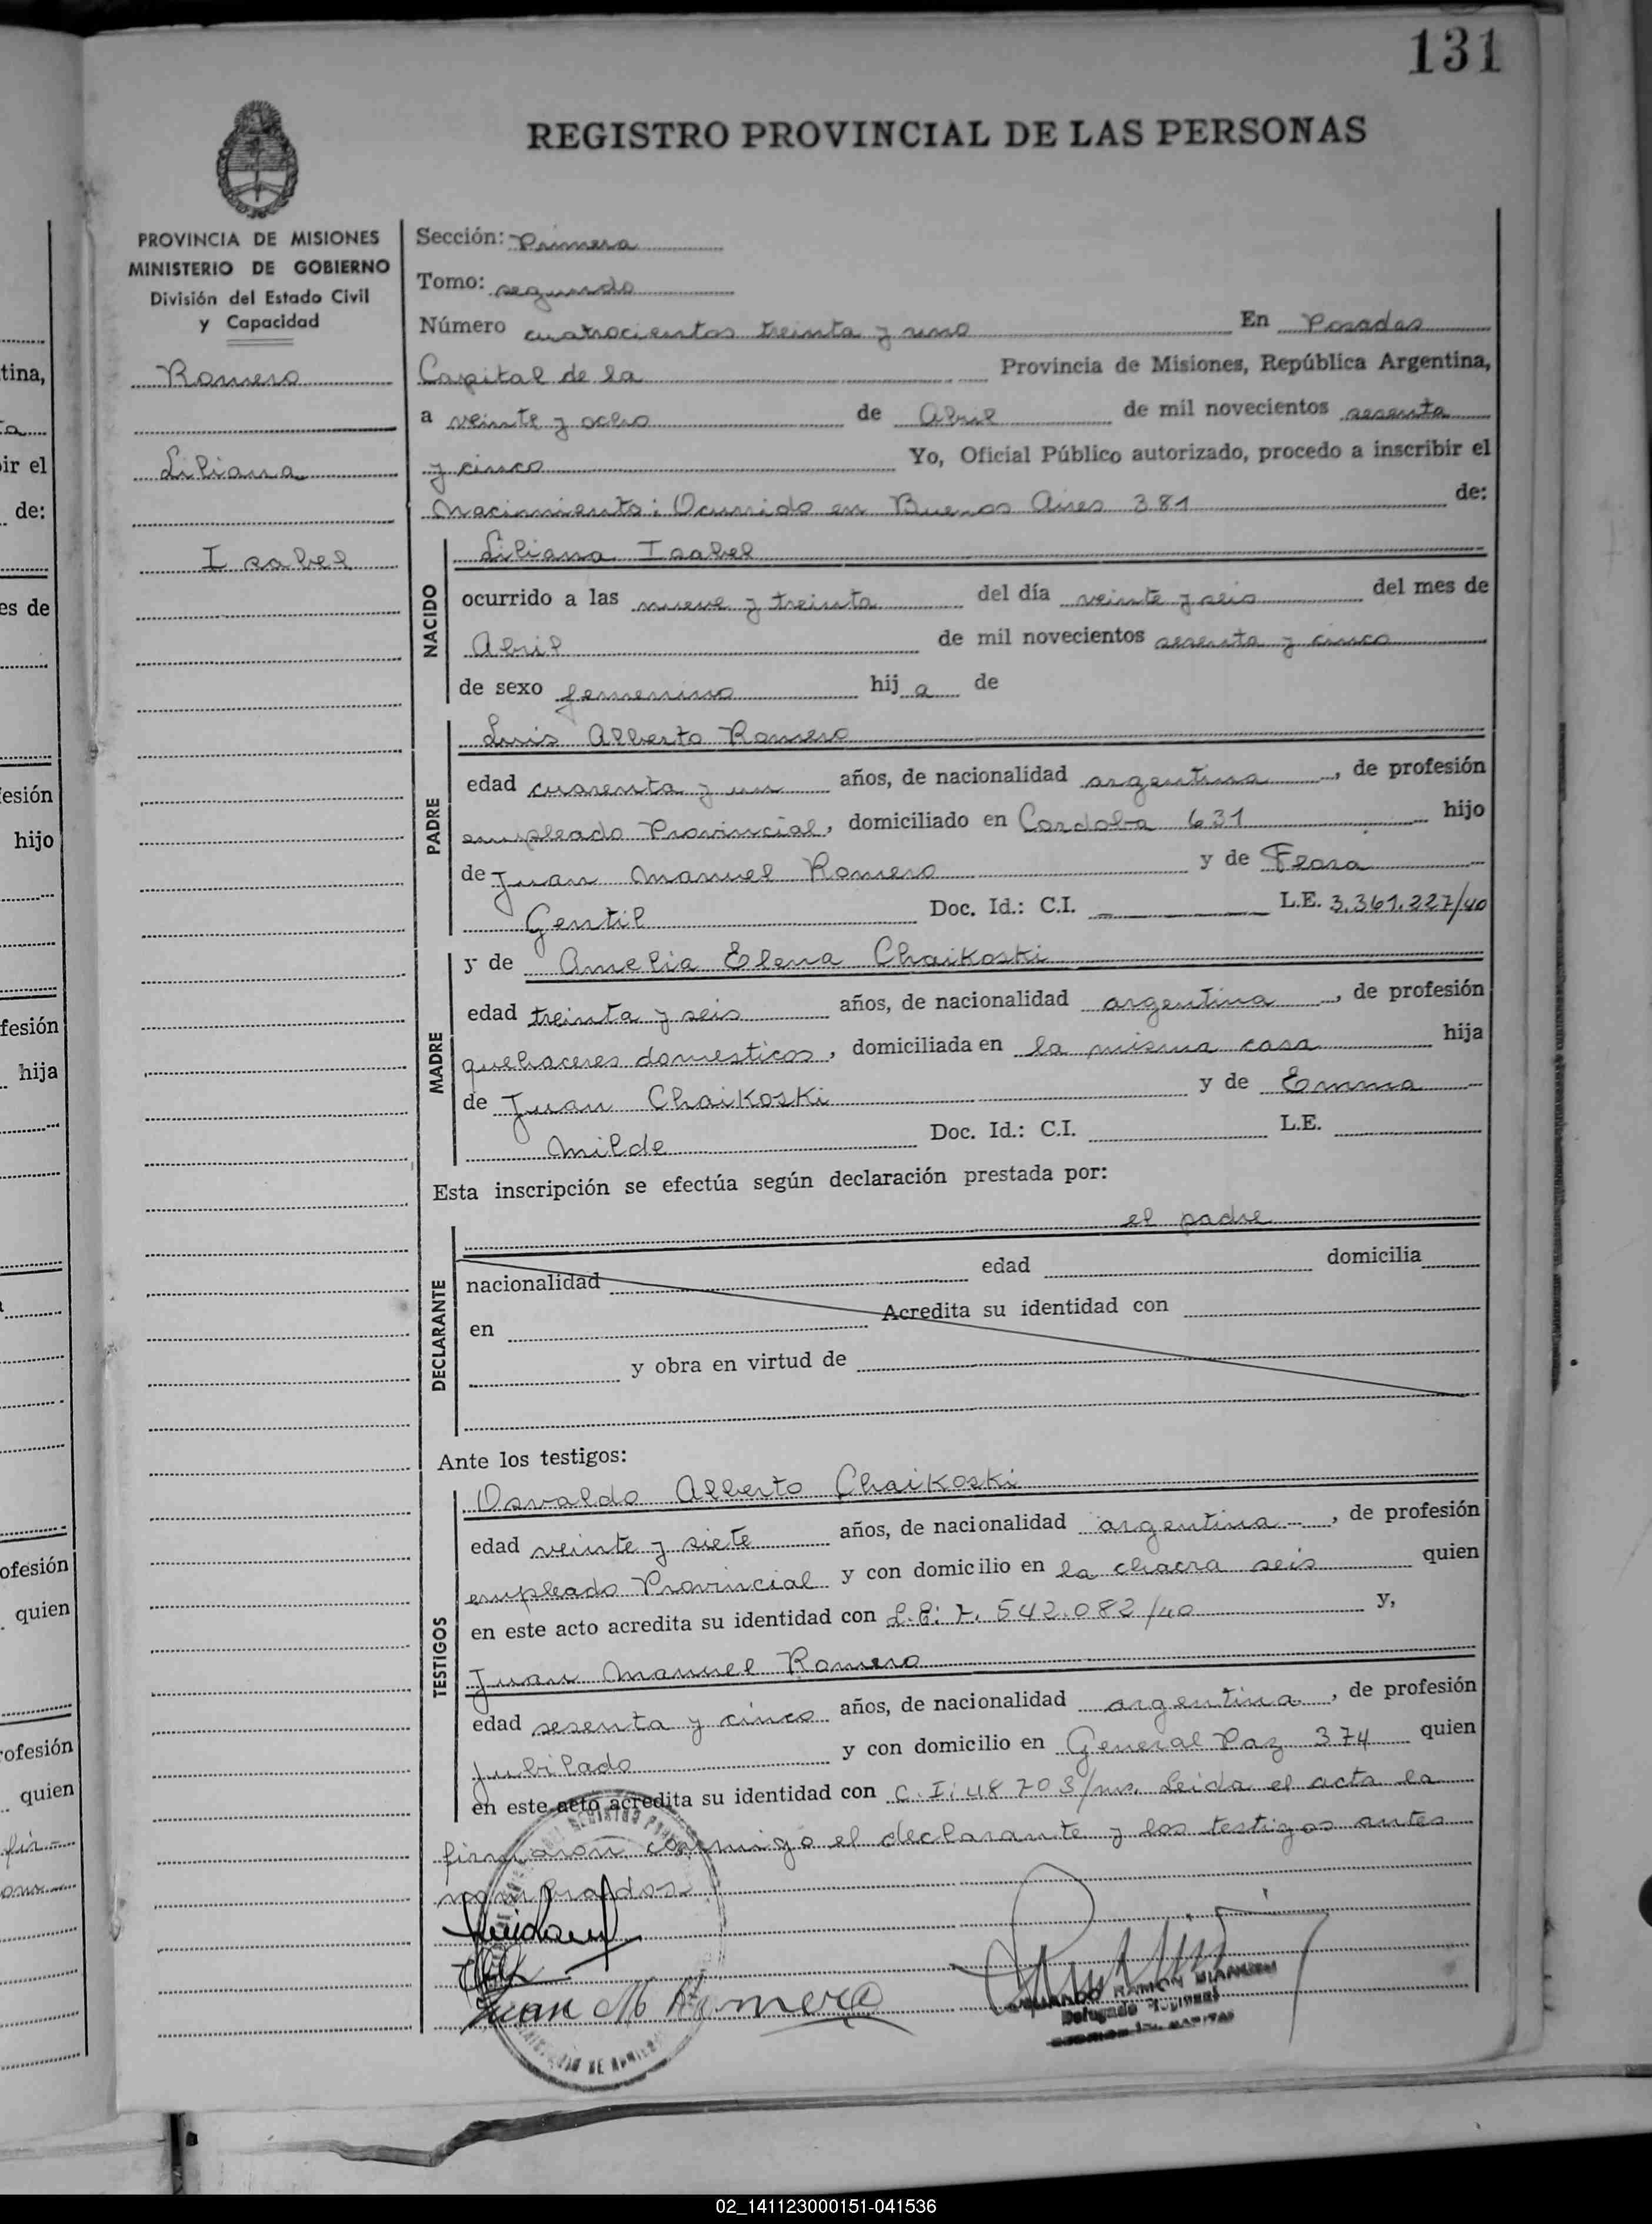 131
REGISTRO PROVINCIAL DE LAS PERSONAS
PROVINCIA DE MISIONES
MINISTERIO DE GOBIERNO
División del Estado Civil
y Capacidad
Romero
Liliana
Isabel
Sección: Primera
Tomo: segundo
Número cuatrocientos treinta y uno En Posadas
Capital de la Provincia de Misiones, República Argentina,
a veinte y ocho de Abril de mil novecientos sesenta
y cinco Yo, Oficial Público autorizado, procedo a inscribir el
Nacimiento: Ocurrido en Buenos Aires 381 de:
NACIDO
Liliana Isabel
ocurrido a las nueve y treinta del día veinte y seis del mes de
Abril de mil novecientos sesenta y cinco
de sexo femenino hij a de
PADRE
Luis Alberto Romero
edad cuarenta y un años, de nacionalidad argentina, de profesión
empleado Provincial, domiciliado en Cordoba 631 hijo
de Juan Manuel Romero y de Flora
Gentil Doc. Id.: C.I. L.E. 3.361.227/40
MADRE
y de Amelia Elena Chaikoski
edad treinta y seis años, de nacionalidad argentina, de profesión
quehaceres domesticos, domiciliada en la misma casa hija
de Juan Chaikoski y de Emma
Milde Doc. Id.: C.I. L.E.
Esta inscripción se efectúa según declaración prestada por:
DECLARANTE
el padre
nacionalidad edad domicilia
en Acredita su identidad con
y obra en virtud de
Ante los testigos:
TESTIGOS
Osvaldo Alberto Chaikoski
edad veinte y siete años, de nacionalidad argentina, de profesión
empleado Provincial y con domicilio en la chacra seis quien
en este acto acredita su identidad con L.E: 7. 542.082/40 y,
Juan Manuel Romero
edad sesenta y cinco años, de nacionalidad argentina, de profesión
jubilado y con domicilio en General Paz 374 quien
en este acto acredita su identidad con C.I: 48703/ms. Leida el acta la
firmaron conmigo el declarante y los testigos antes
nombrados
Juan M Romero
RAMON
Delegado Regional
tina,
ir el
de:
es de
esión
hijo
fesión
hija
ofesión
quien
rofesión
quien
fir-
02_141123000151-041536